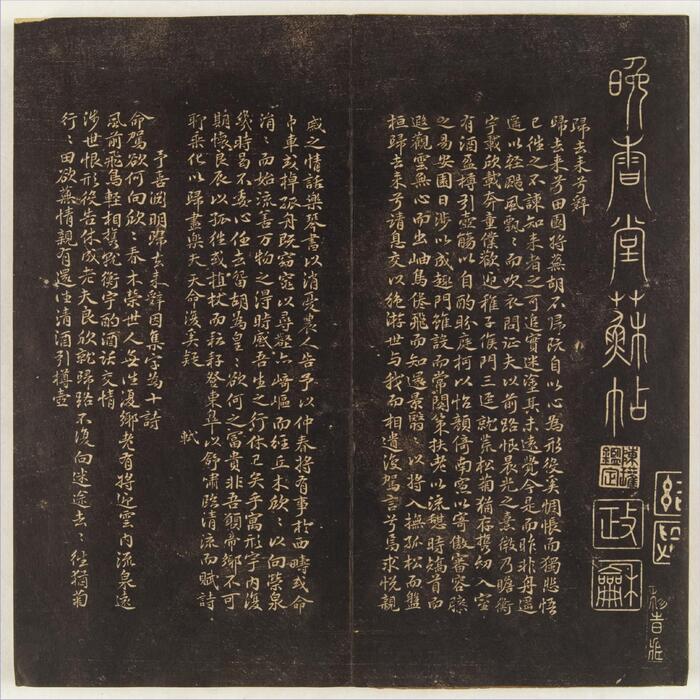 晚香堂蘇帖
政龢
歸去來兮辭
歸去來兮田園將蕪胡不歸既自以心為形役奚惆悵而獨悲悟
已往之不諫知來者之可追實迷塗其未遠覺今是而昨非舟遥
遥以輕颺風飄〻而吹衣問征夫以前路恨晨光之熹微乃瞻衡
宇載欣載奔童僕歡迎稚子候門三逕就荒松菊猶存攜幼入室
有酒盈樽引壺觴以自酌眄庭柯以怡顏倚南窓以寄傲審容膝
之易安園日涉以成趣門雖設而常關策扶老以流憩時矯首而
遐觀雲無心而出岫鳥倦飛而知還景翳〻以將入撫孤松而盤
桓歸去來兮請息交以絕游世與我而相遺復駕言兮焉求悅親
戚之情話樂琴書以消憂農人告予以仲春將有事於西疇或命
巾車或棹孤舟既窈窕以尋壑亦崎嶇而經丘木欣〻以向榮泉
涓〻而始流善万物之得時感吾生之行休已矣乎寓形宇内復
幾時曷不委心任去留胡為皇〻欲何之冨貴非吾願帝鄉不可
期懷良辰以孤往或植杖而耘耔登東皋以舒嘯臨清流而賦詩
耶乘化以歸盡樂夫天命復奚疑
軾
予喜淵明歸去來辭因集字為十詩
命駕欲何向欣〻春木榮世人無往復鄉老有將迎雲内流泉遠
風前飛鳥輕相攜就衡宇酌酒話交情
涉世恨形役告休成老夫良欣就歸路不復向迷途去〻徑猶菊
行〻田欲蕪情親有還往清酒引樽壺